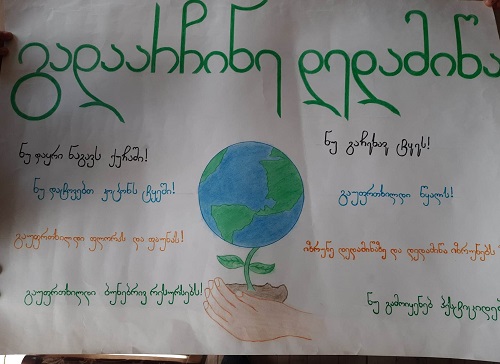 გადაარჩინე დედამიწა
ნუ დაყრი ნაგავს ქუჩაში!
ნუ დატოვებთ კოცონს ტყეში!
გაუფრთხილდი ფლორას და ფაუნას!
გაუფრთხილდი ბუნებრივ რესურსებს!
ნუ გაჩეხავ ტყეს!
გაუფრთხილდი წყალს!
იზრუნე დედამიწაზე და დედამიწა იზრუნებს
ნუ გამოიყენებ